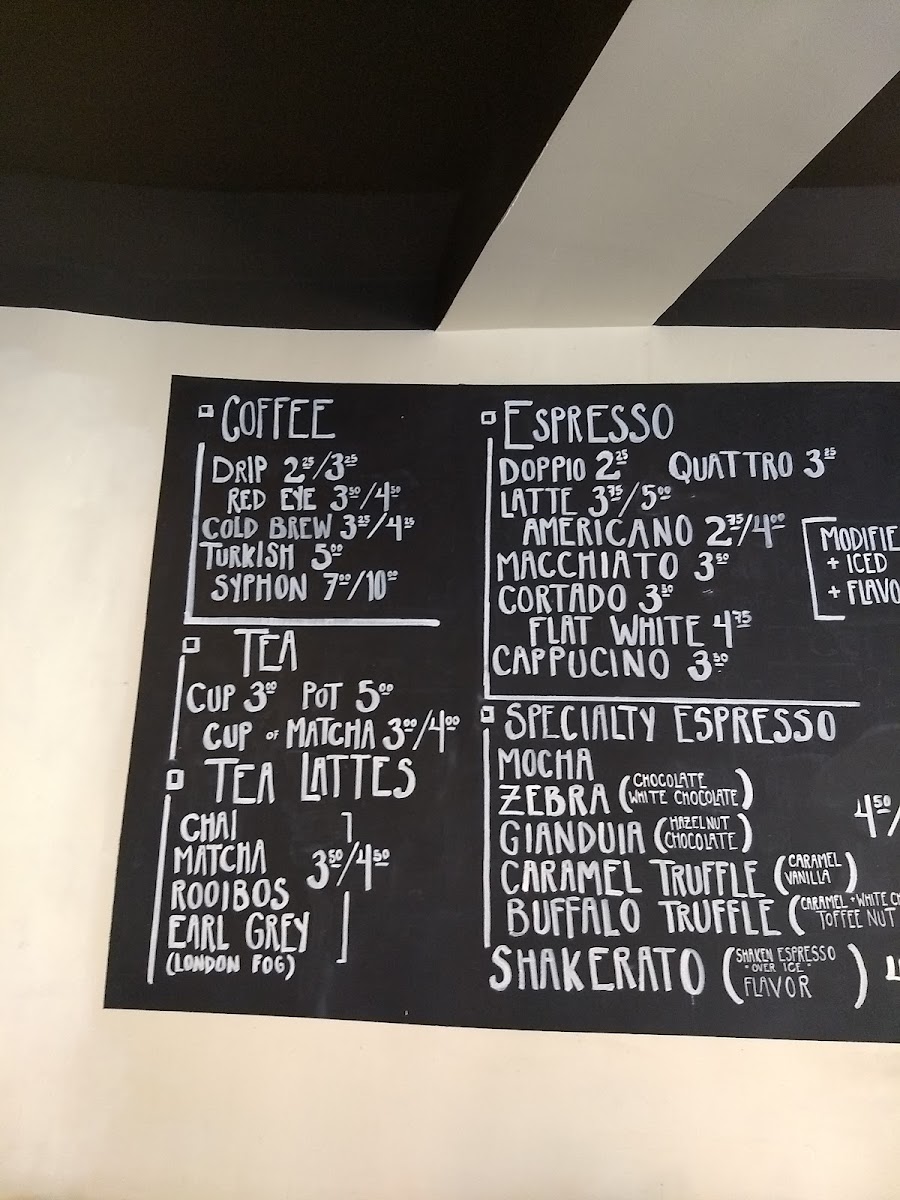 COFFEE
DRIP 2²⁵/3²⁵
RED EYE 3⁵⁰/4⁵⁰
COLD BREW 3²⁵/4²⁵
TURKISH 5⁰⁰
SYPHON 7⁰⁰/10⁰⁰
TEA
CUP 3⁰⁰ POT 5⁰⁰
CUP OF MATCHA 3⁰⁰/4⁰⁰
TEA LATTES
CHAI
MATCHA
3⁵⁰/4⁵⁰
ROOIBOS
EARL GREY
(LONDON FOG)
ESPRESSO
DOPPIO 2²⁵ QUATTRO 3²⁵
LATTE 3⁷⁵/5⁰⁰
AMERICANO 2⁷⁵/4⁰⁰
MACCHIATO 3⁵⁰
CORTADO 3⁵⁰
FLAT WHITE 4⁷⁵
CAPPUCINO 3⁵⁰
MODIFIE
+ ICED
+ FLAVO
SPECIALTY ESPRESSO
MOCHA
ZEBRA (CHOCOLATE
WHITE CHOCOLATE)
4⁵⁰/
GIANDUIA (HAZELNUT
CHOCOLATE)
CARAMEL TRUFFLE (CARAMEL
VANILLA)
BUFFALO TRUFFLE (CARAMEL + WHITE CH
TOFFEE NUT
SHAKERATO (SHAKEN ESPRESSO
- OVER ICE -
FLAVOR)